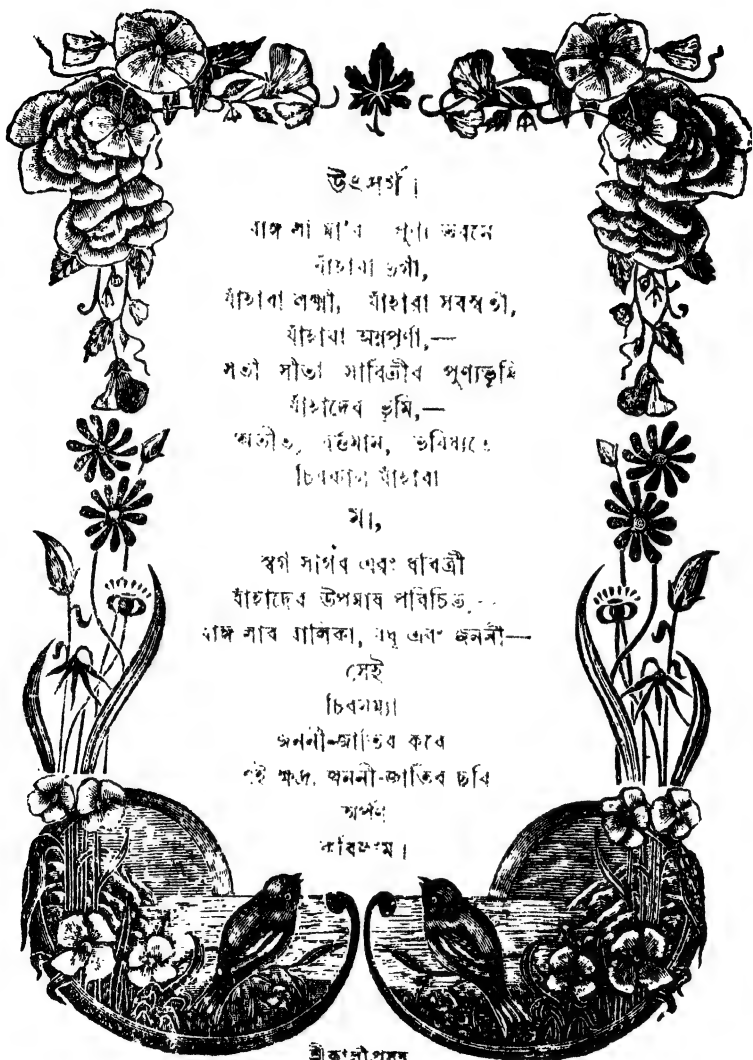 উৎসর্গ।
বাঙ্গলা মা'র পুণ্য ভবনে
যাঁহারা
যাঁহারা লক্ষ্মী, যাঁহারা সরস্বতী,
যাঁহারা অন্নপূর্ণা,—
সতী সীতা সাবিত্রীর পুণ্যভূমি
যাঁহাদের ভূমি,—
অতীত, বর্ত্তমান, ভবিষ্যতে
চিরকাল যাঁহারা
মা,
স্বর্গ সাগর এবং ধরিত্রী
যাঁহাদের উপমায় পরিচিত,—
বাঙ্গলার বালিকা, বধূ এবং জননী—
সেই
চিরনম্যা
জননী-জাতির করে
এই ক্ষুদ্র জননী-জাতির ছবি
অর্পণ
করিলাম।
শ্রীকালীপ্রসন্ন